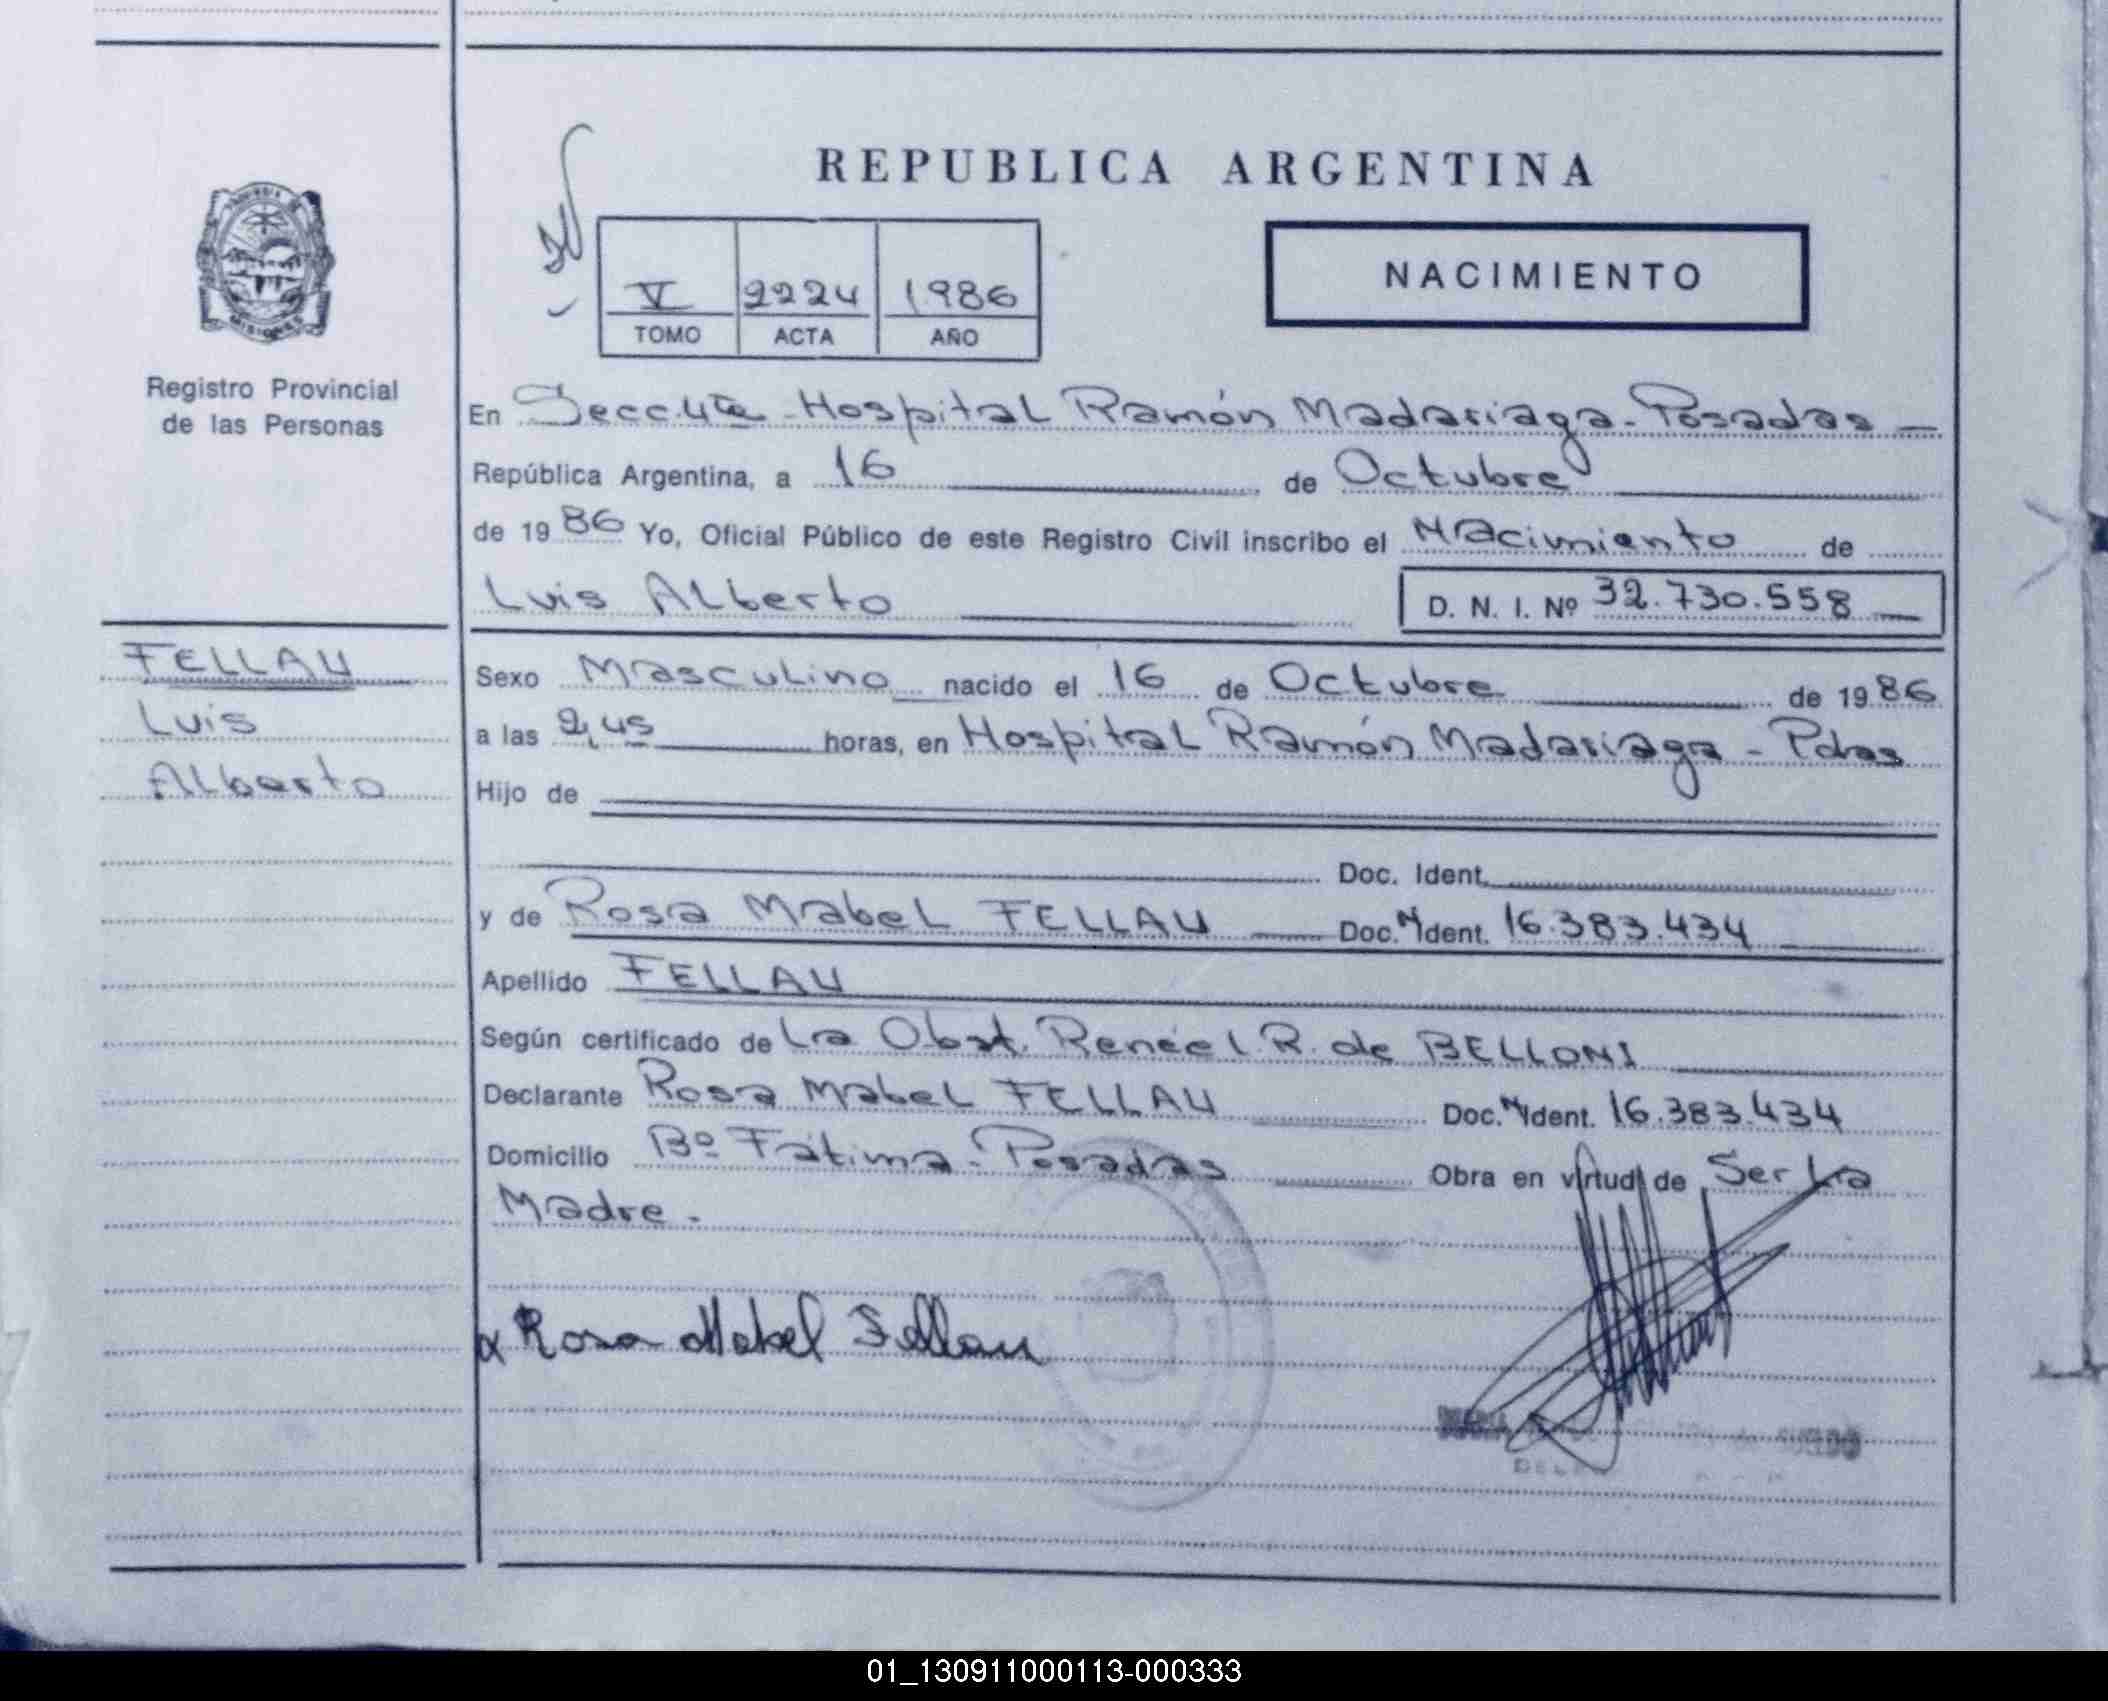 REPUBLICA ARGENTINA
NACIMIENTO
V 2224 1986
TOMO ACTA AÑO
MISIONES
Registro Provincial
de las Personas
En Secc. 4ta - Hospital Ramón Madariaga - Posadas
República Argentina, a 16 de Octubre
de 1986 Yo, Oficial Público de este Registro Civil inscribo el Nacimiento de
Luis Alberto D. N. I. Nº 32.730.558
FELLAU
Luis
Alberto
Sexo Masculino nacido el 16 de Octubre de 1986
a las 2,45 horas, en Hospital Ramón Madariaga - Pdas
Hijo de
Doc. Ident.
y de Rosa Mabel FELLAU Doc. N Ident. 16.383.434
Apellido FELLAU
Según certificado de La Obst. Reneé L.R. de BELLONI
Declarante Rosa Mabel FELLAU Doc. N Ident. 16.383.434
Domicilio Bº Fátima - Posadas Obra en virtud de Ser La
Madre.
x Rosa Mabel Fellau
01_130911000113-000333